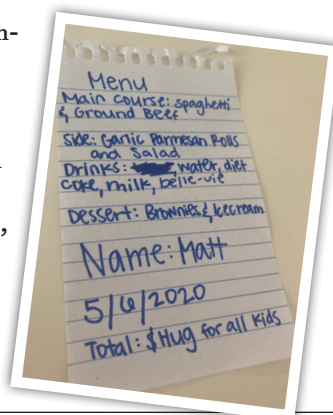 n-
,
Menu
Main Course: spaghetti
& Ground Beef
Side: Garlic Parmesan Rolls
and Salad
Drinks: water, diet
coke, milk, belle-vie
Dessert: Brownies & Icecream
Name: Matt
5/6/2020
Total: $Hug for all kids